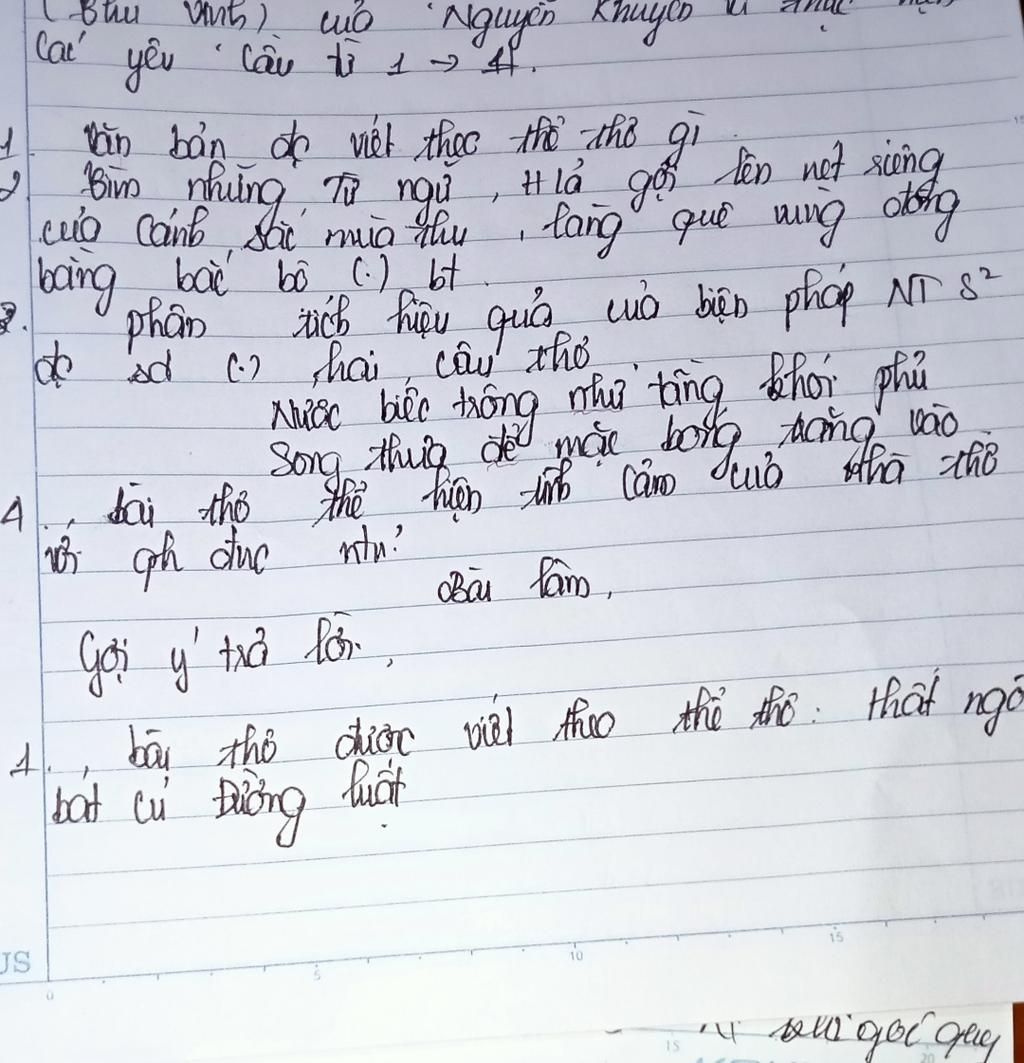 (Thu Vịnh) của Nguyễn Khuyến
Các yêu cầu từ 1 → 4.
1 Văn bản đc viết theo thể thơ gì
2 Tìm những từ ngữ, H/ả gợi lên nét riêng
của cảnh sắc mùa thu, làng quê vùng đồng
bằng bắc bộ (.) bt
3. phân tích hiệu quả của biện pháp NT S²
đc sd (.) hai câu thơ
Nước biếc trông như tầng khói phủ
Song thưa để mặc bóng trăng vào
4., bài thơ thể hiện tình cảm của nhà thơ
với qh đnc ntn?
Bài làm,
Gợi ý trả lời,
1., bài thơ được viết theo thể thơ: thất ngô
bát cú Đường luật
US
0 5 10 15
15 20